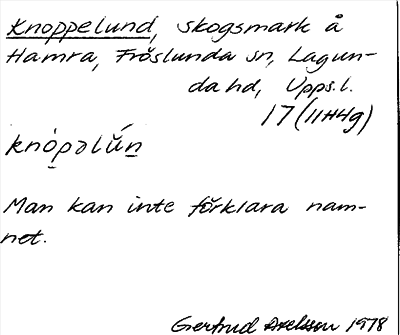 Knoppelund, skogsmark å
Hamra, Fröslunda sn, Lagun-
da hd, Upps. l.
17 (11H4g)
knópəlǔ́n
Man kan inte förklara nam-
net.
Gertrud Axelsson 1978